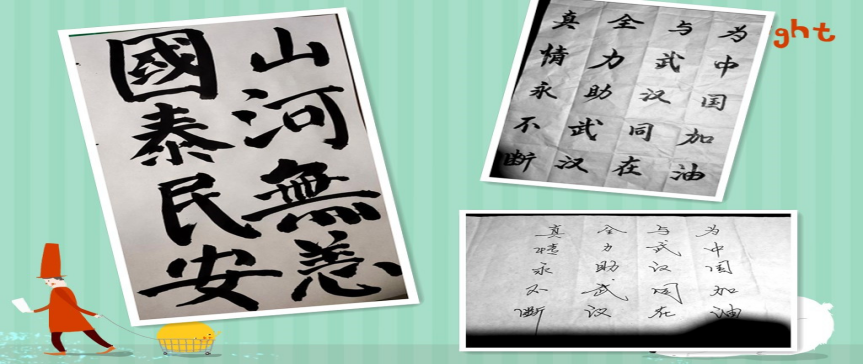 山河無恙
國泰民安
为中国加油
与武汉同在
全力助武汉
真情永不断
ght
为中国加油
与武汉同在
全力助武汉
真情永不断